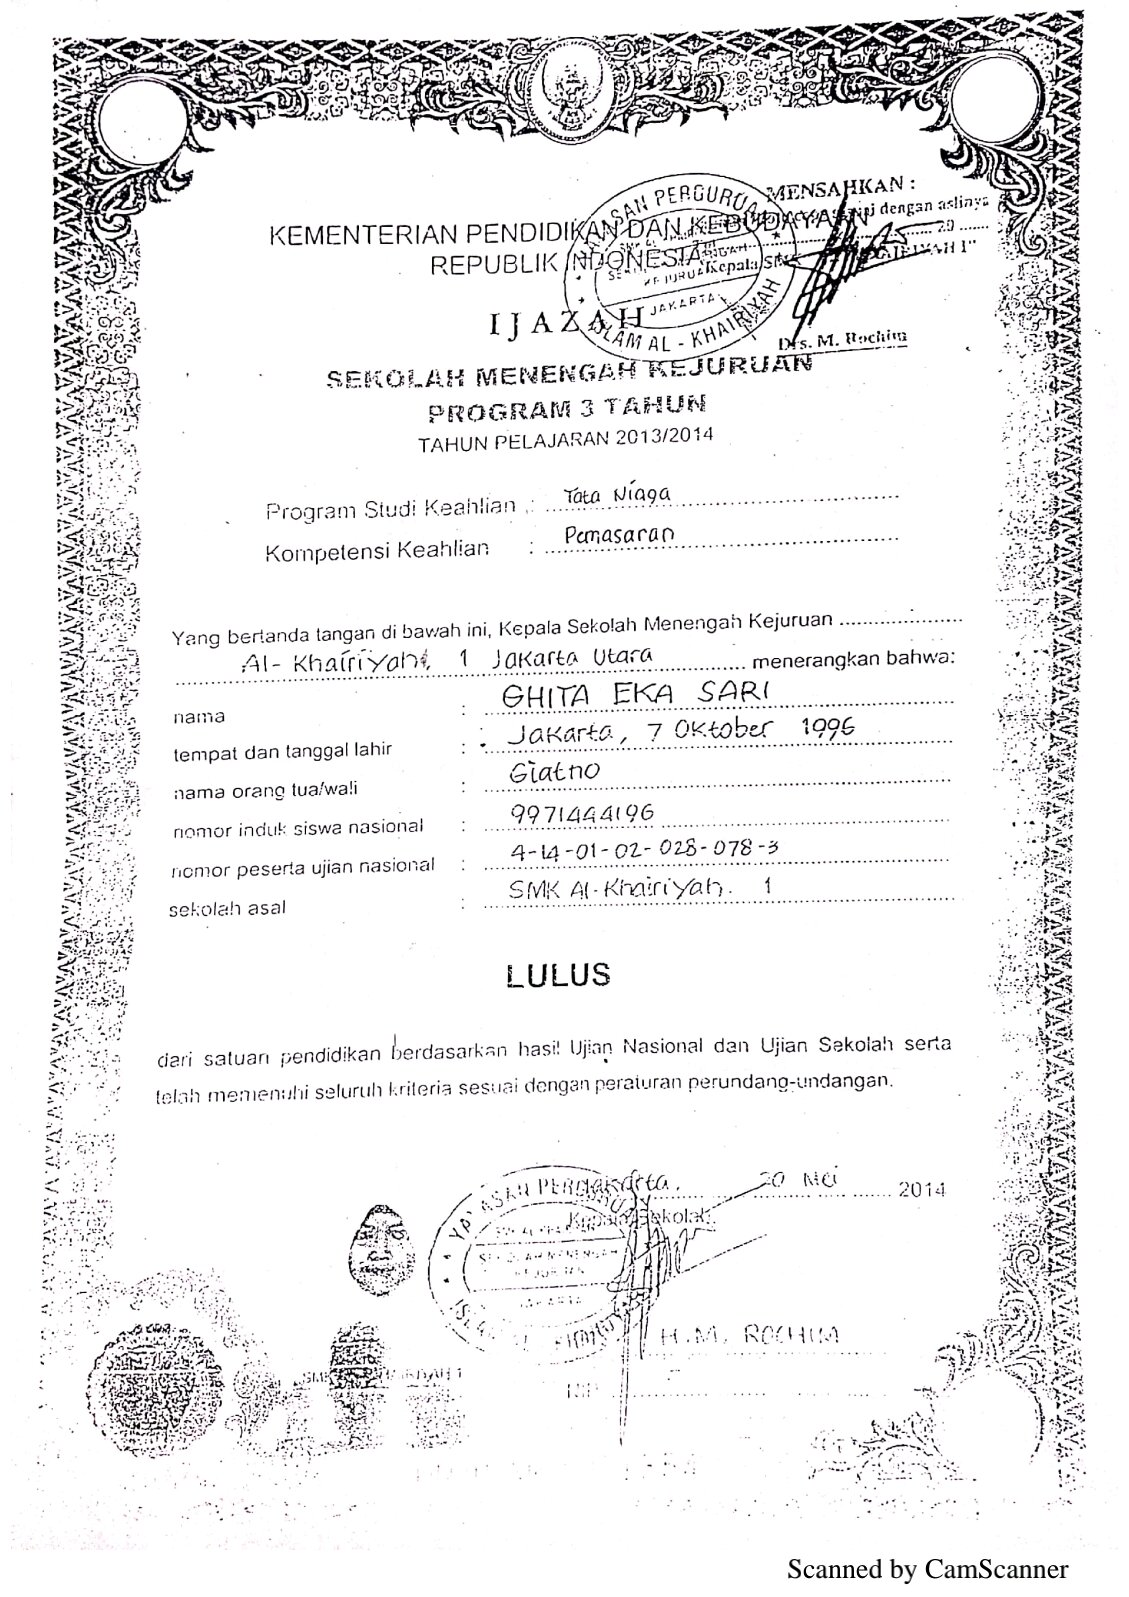 MENSAHKAN :
dengan aslinya
20
KEMENTERIAN PENDIDIKAN DAN KEBUDAYAAN
REPUBLIK INDONESIA
Kepala
JAKARTA
ISLAM AL - KHAIRIYAH
Drs. M. Rochim
IJAZAH
SEKOLAH MENENGAH KEJURUAN
PROGRAM 3 TAHUN
TAHUN PELAJARAN 2013/2014
Program Studi Keahlian : Tata Niaga
Kompetensi Keahlian : Pemasaran
Yang bertanda tangan di bawah ini, Kepala Sekolah Menengah Kejuruan
Al- Khairiyah 1 Jakarta Utara menerangkan bahwa:
nama : GHITA EKA SARI
tempat dan tanggal lahir : Jakarta, 7 Oktober 1996
nama orang tua/wali : Giatno
nomor induk siswa nasional : 9971444196
nomor peserta ujian nasional : 4-14-01-02-028-078-3
sekolah asal : SMK Al-Khairiyah. 1
LULUS
dari satuan pendidikan berdasarkan hasil Ujian Nasional dan Ujian Sekolah serta
telah memenuhi seluruh kriteria sesuai dengan peraturan perundang-undangan.
Jakarta, 20 Mei 2014
Kepala Sekolah,
SEKOLAH MENENGAH
KEJURUAN
JAKARTA
H.M. ROCHIM
NIP
Scanned by CamScanner